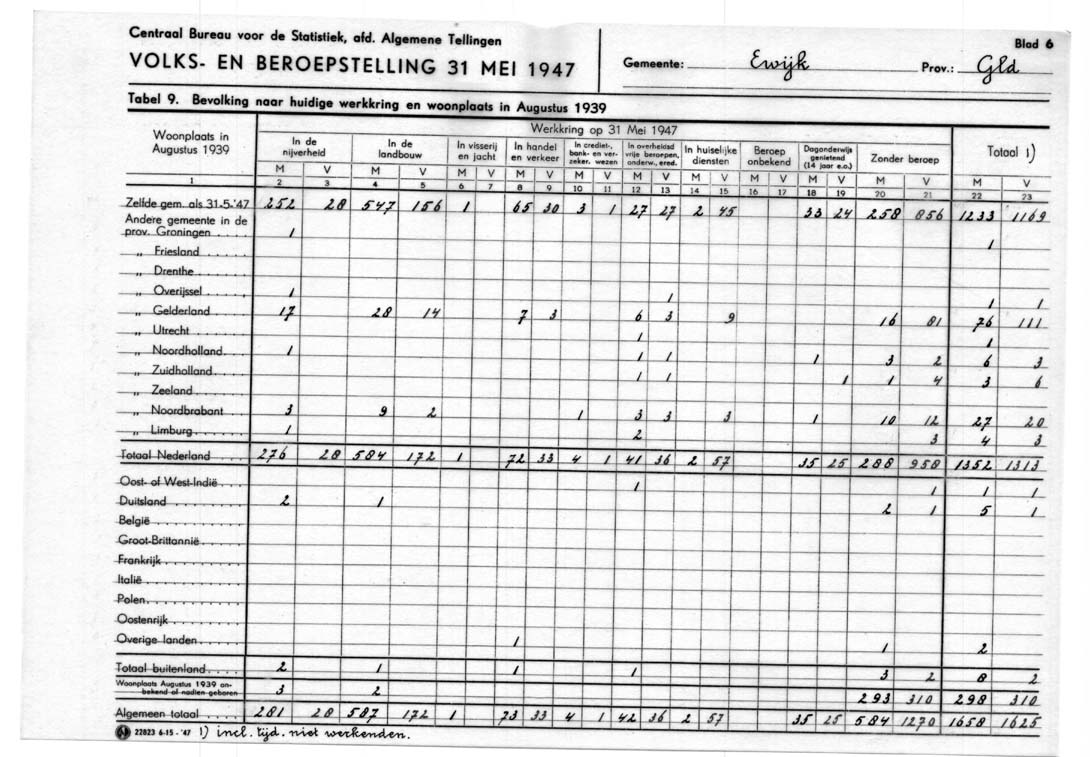 Centraal Bureau voor de Statistiek, afd. Algemene Tellingen
VOLKS- EN BEROEPSTELLING 31 MEI 1947
Gemeente: Ewijk Prov.: Gld
Blad 6
Tabel 9. Bevolking naar huidige werkkring en woonplaats in Augustus 1939
Woonplaats in Augustus 1939
Werkkring op 31 Mei 1947
In de nijverheid
In de landbouw
In visserij en jacht
In handel en verkeer
In crediet-, bank- en verzeker. wezen
In overheidsd vrije beroepen, onderw., ered.
In huiselijke diensten
Beroep onbekend
Dagonderwijs genietend (14 jaar e.o.)
Zonder beroep
Totaal 1)
M V M V M V M V M V M V M V M V M V M V M V
1 2 3 4 5 6 7 8 9 10 11 12 13 14 15 16 17 18 19 20 21 22 23
Zelfde gem. als 31-5-'47 252 28 547 156 1 65 30 3 1 27 27 2 45 33 24 258 856 1233 1169
Andere gemeente in de
prov. Groningen . . . . 1 1
„ Friesland . . . . . .
„ Drenthe . . . . . . .
„ Overijssel . . . . . 1 1 1 1
„ Gelderland . . . . 17 28 14 7 3 6 3 9 16 81 76 111
„ Utrecht . . . . . . 1 1
„ Noordholland . . . 1 1 1 1 3 2 6 3
„ Zuidholland . . . . 1 1 1 1 4 3 6
„ Zeeland . . . . . .
„ Noordbrabant . . . 3 9 2 1 3 3 3 1 10 12 27 20
„ Limburg . . . . . . 1 2 3 4 3
Totaal Nederland . . . 276 28 584 172 1 72 33 4 1 41 36 2 57 35 25 288 958 1352 1313
Oost- of West-Indië . . . 1 1 1 1
Duitsland . . . . . . . 2 1 2 1 5 1
België . . . . . . . .
Groot-Brittannië . . . .
Frankrijk . . . . . . .
Italië . . . . . . . .
Polen . . . . . . . .
Oostenrijk . . . . . . .
Overige landen . . . . 1 1 2
Totaal buitenland . . . . 2 1 1 1 3 2 8 2
Woonplaats Augustus 1939 on-
bekend of nadien geboren 3 2 293 310 298 310
Algemeen totaal . . . . 281 28 587 172 1 73 33 4 1 42 36 2 57 35 25 584 1270 1658 1625
22823 6-15 - '47 1) incl. tijd. niet werkenden.